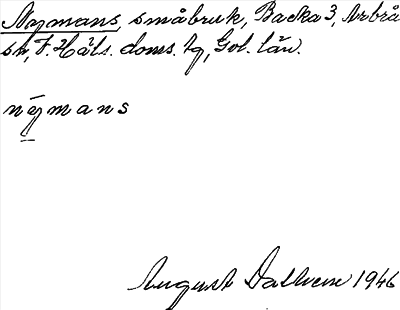 Nymans, småbruk, Backa 3, Arbrå
sn, V. Häls. doms. tg, Gvl. län.
nȳmans
August Dalheve 1946